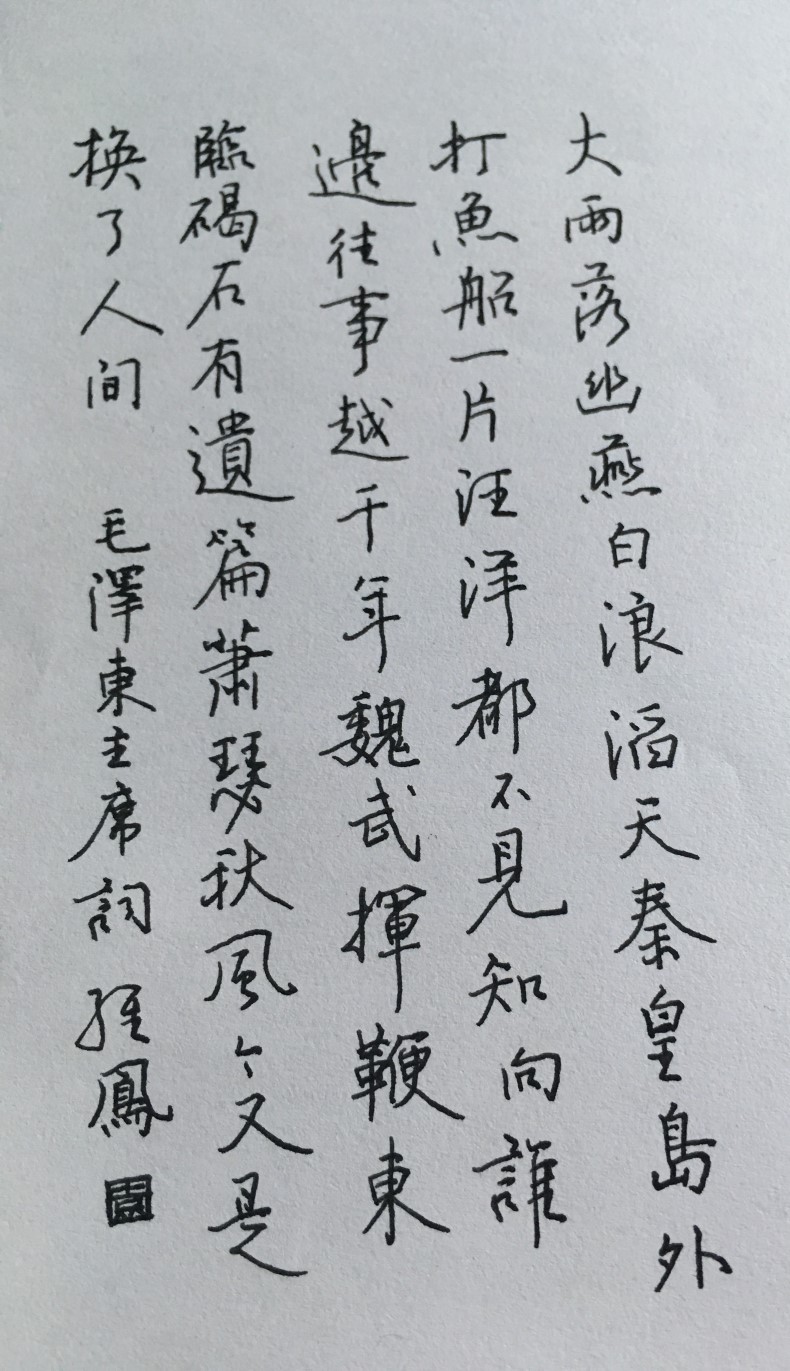 大雨落幽燕白浪滔天秦皇島外
打魚船一片汪洋都不見知向誰
邊往事越千年魏武揮鞭東
臨碣石有遺篇蕭瑟秋風今又是
换了人间 毛澤東主席詞 鳳